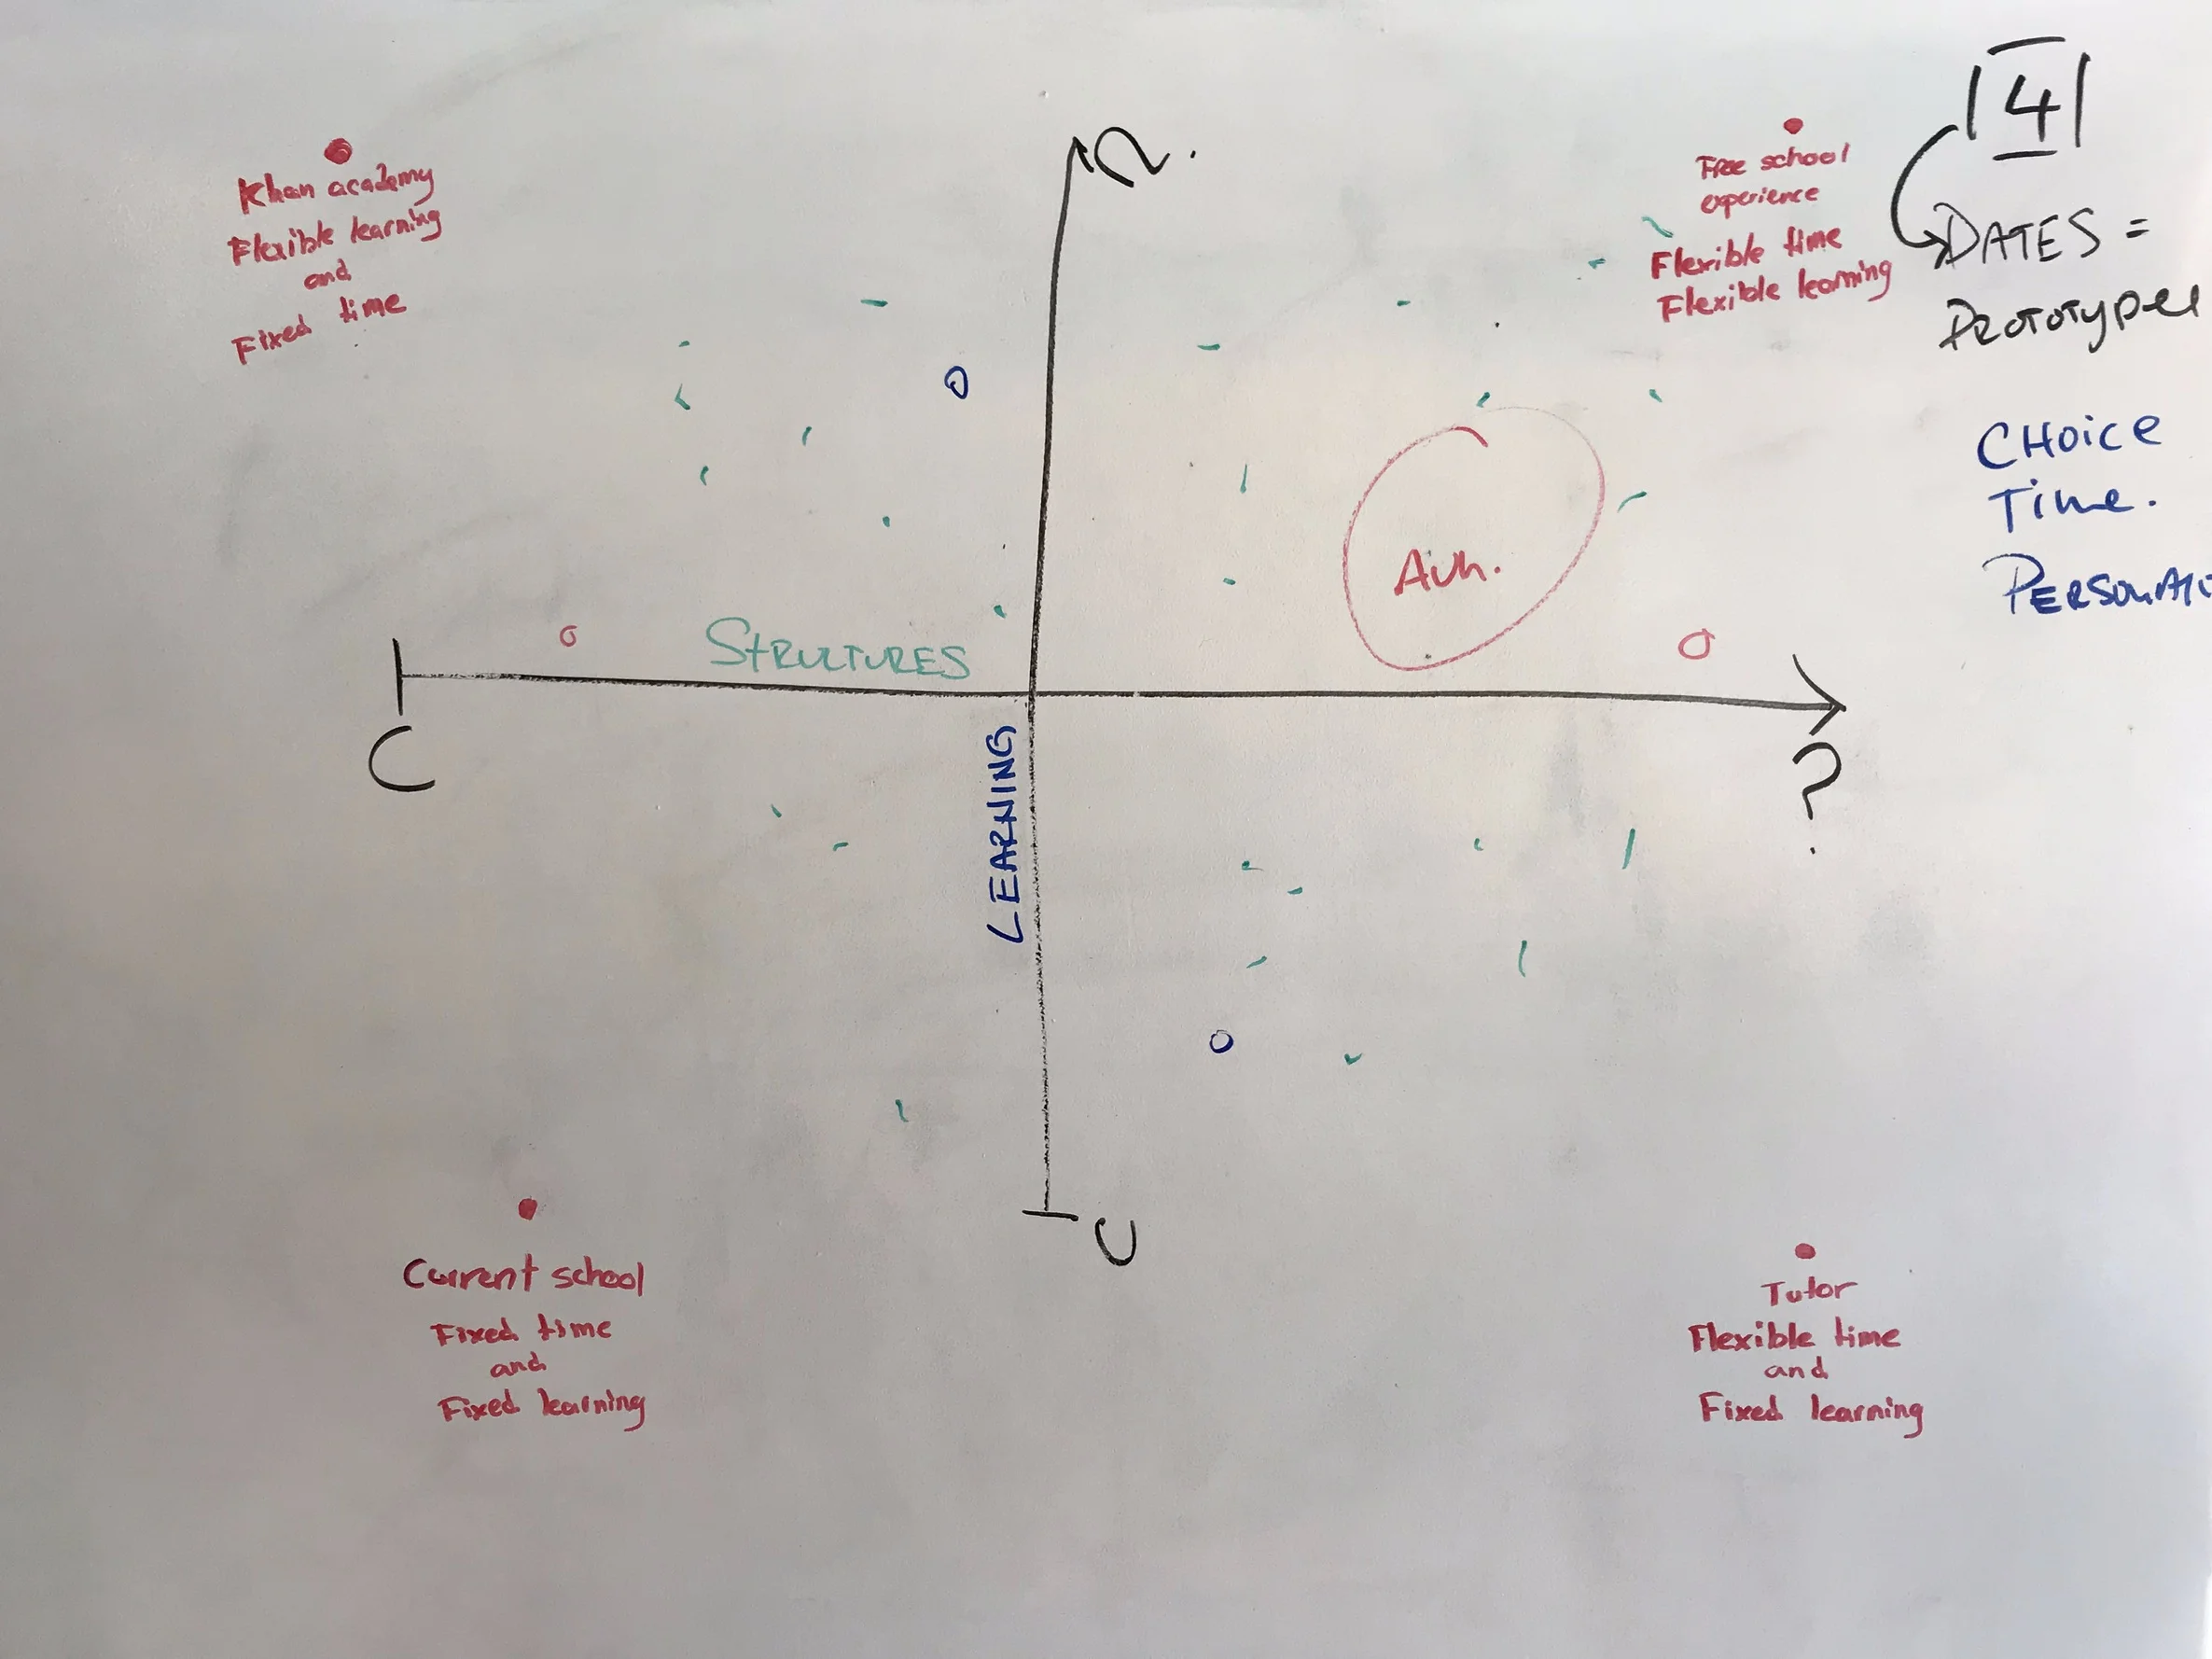 Khan academy
Flexible learning
and
Fixed time
?
Free school
experience
Flexible time
Flexible learning
4
DATES =
Prototypes
CHOICE
Time.
STRUCTURES
C
?
LEARNING
C
Current school
Fixed time
and
Fixed learning
Tutor
Flexible time
and
Fixed learning